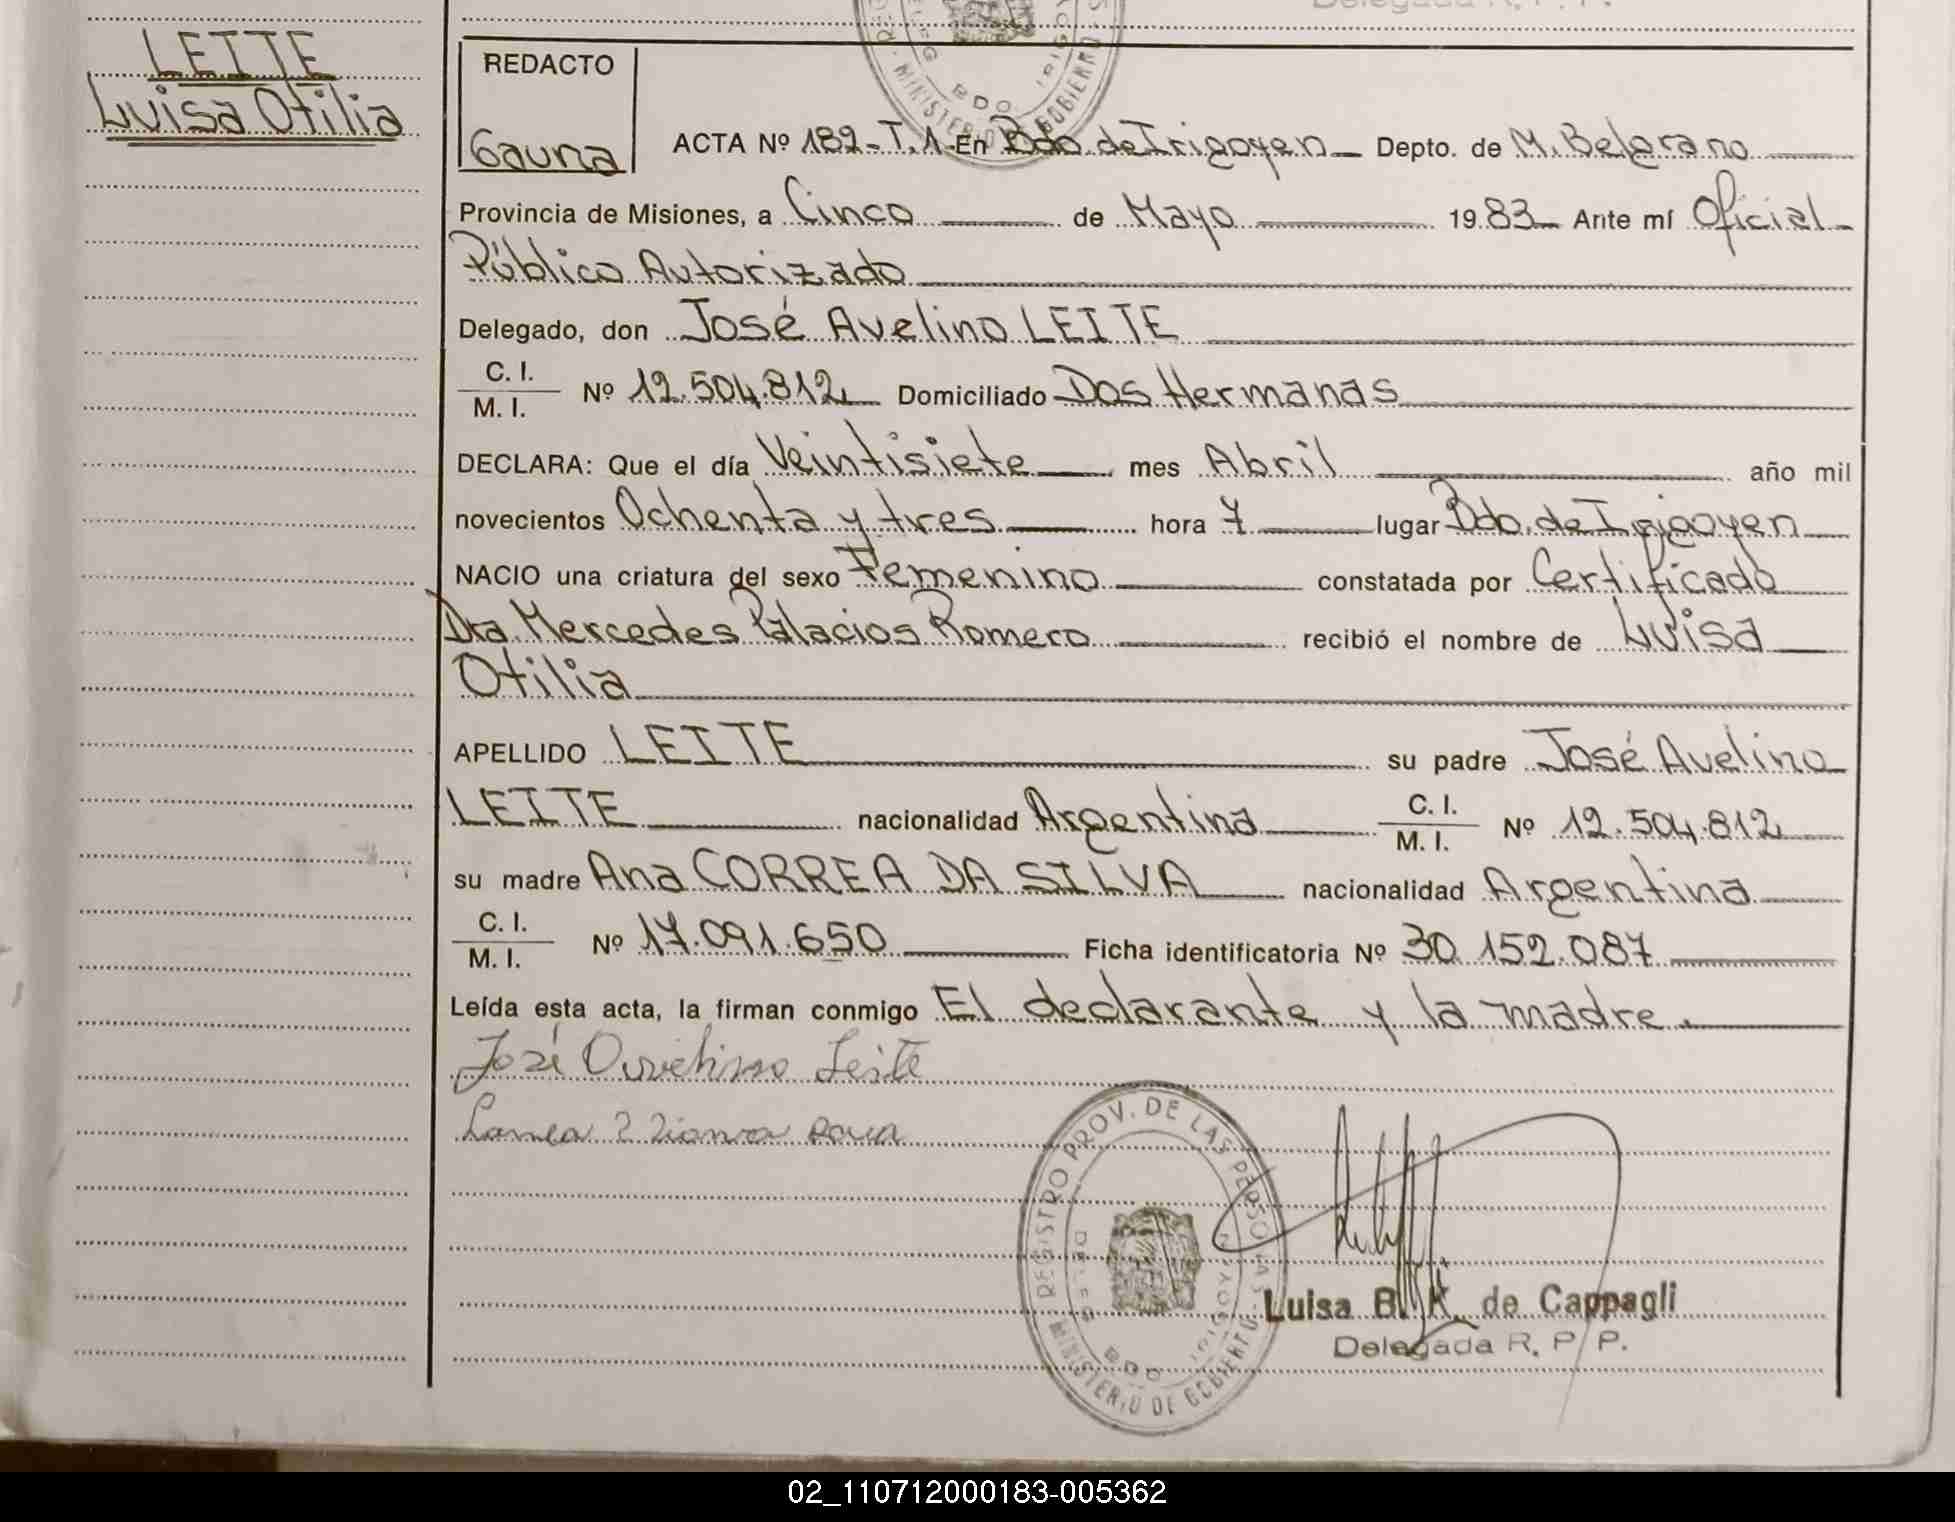 LEITE
Luisa Otilia
REDACTO
Gauna
ACTA Nº 182-T.1-En Bdo. de Irigoyen Depto. de M. Belgrano
Provincia de Misiones, a Cinco de Mayo 1983 Ante mí Oficial
Público Autorizado
Delegado, don José Avelino LEITE
C. I.
M. I. Nº 12.504.812 Domiciliado Dos Hermanas
DECLARA: Que el día Veintisiete mes Abril año mil
novecientos Ochenta y tres hora 7 lugar Bdo. de Irigoyen
NACIO una criatura del sexo Femenino constatada por Certificado
Dra. Mercedes Palacios Romero recibió el nombre de Luisa
Otilia
APELLIDO LEITE su padre José Avelino
LEITE nacionalidad Argentina C. I. M. I. Nº 12.504.812
su madre Ana CORREA DA SILVA nacionalidad Argentina
C. I.
M. I. Nº 17.091.650 Ficha identificatoria Nº 30.152.087
Leída esta acta, la firman conmigo El declarante y la madre.
José Leite
REGISTRO PROV. DE LAS PERSONAS
MINISTERIO DE GOBIERNO
Luisa B. de Cappagli
Delegada R. P. P.
02_110712000183-005362